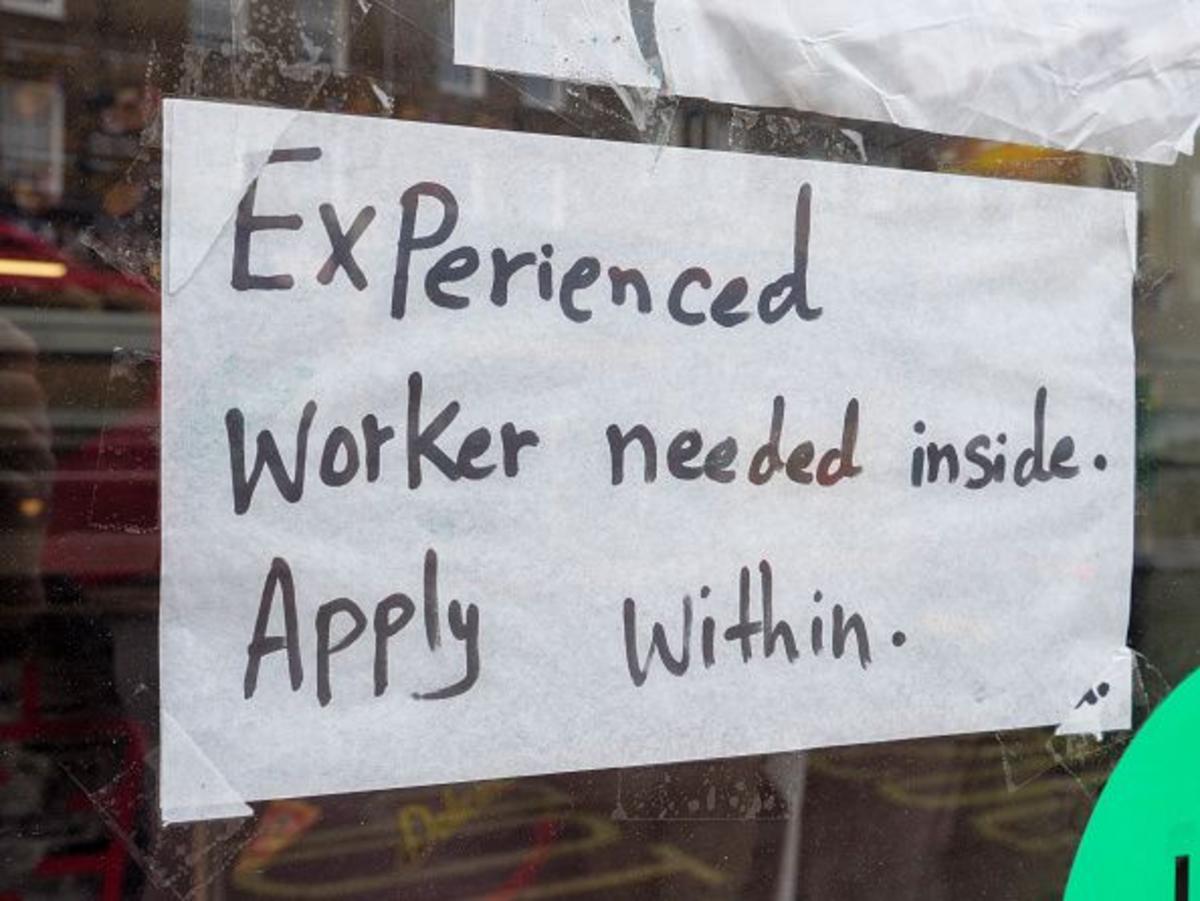 ExPerienced
Worker needed inside.
Apply within.